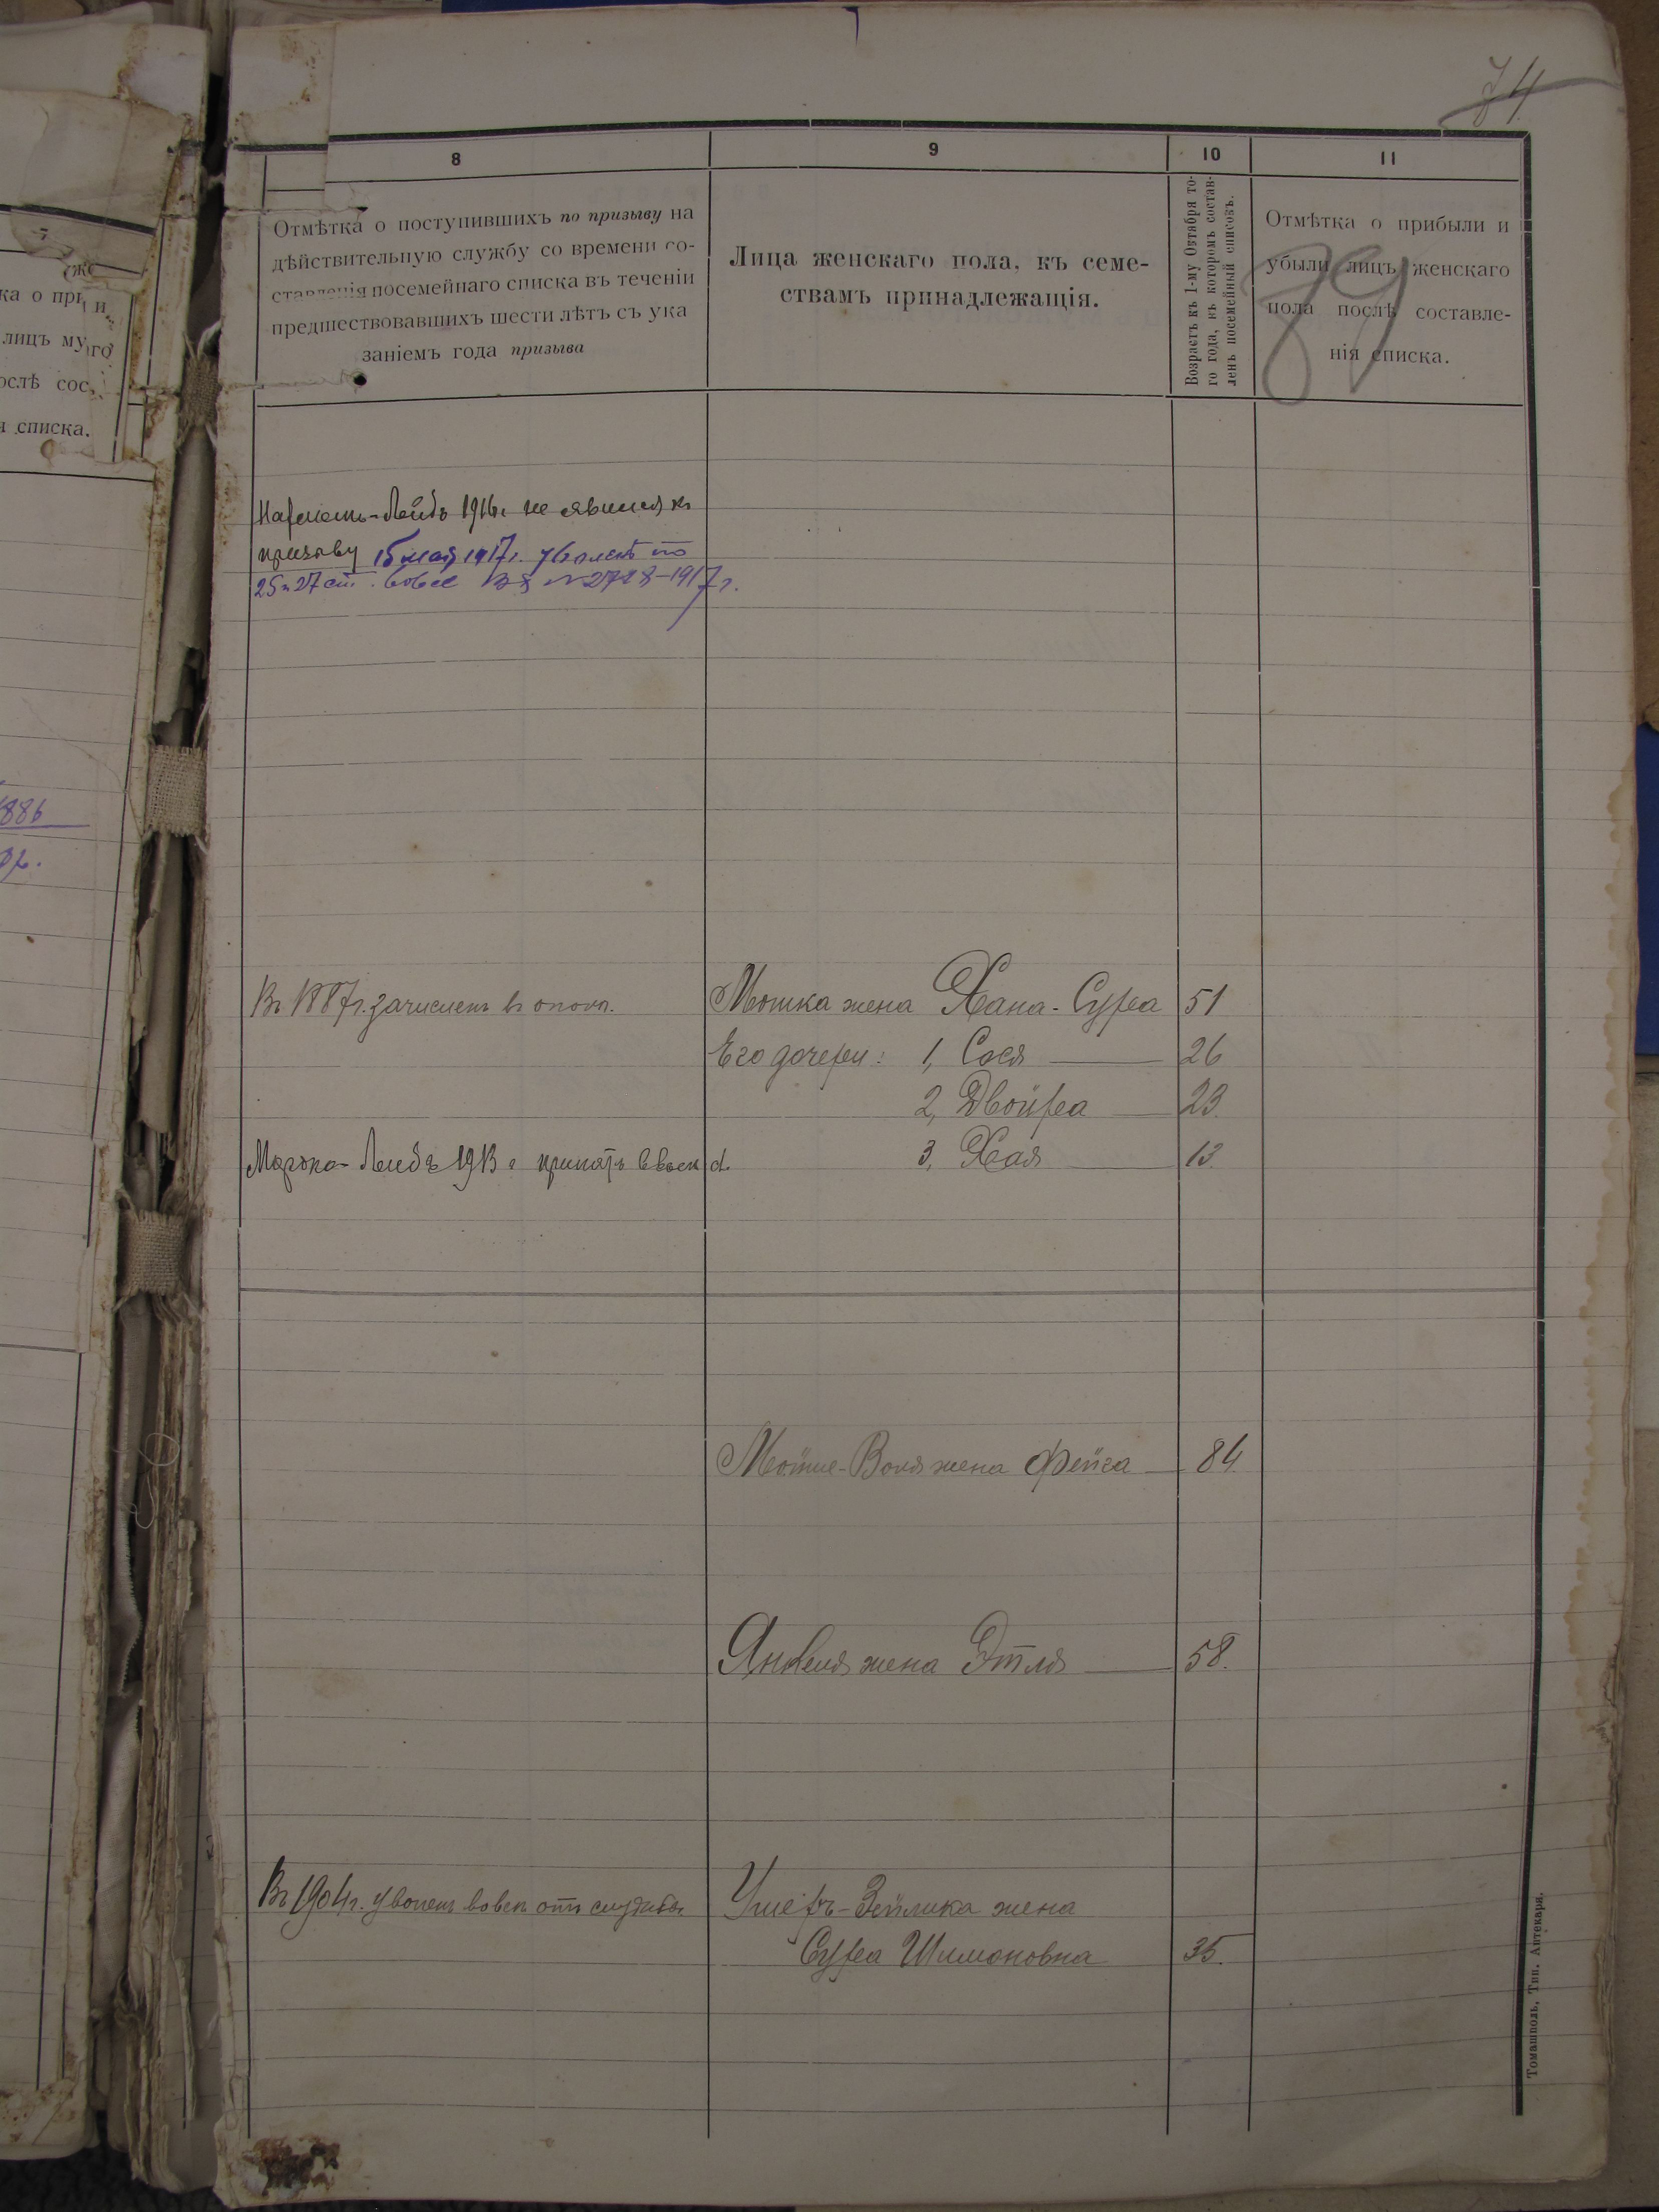 74
8
9
10
11
Отмѣтка о поступившихъ по призыву на
дѣйствительную службу со времени со-
ставленія посемейнаго списка въ теченіи
предшествовавшихъ шести лѣтъ съ ука
заніемъ года призыва
Лица женскаго пола, къ семе-
ствамъ принадлежащія.
Возрастъ къ 1-му Октября то-
го года, въ которомъ состав-
ленъ посемейный списокъ.
Отмѣтка о прибыли и
убыли лицъ женскаго
пола послѣ составле-
нія списка.
79
ка о при
лицъ му
ослѣ сос
списка.
886
Лейбъ 1916г не явился къ
призыву 15 мая 1917г. уволенъ по
25 и 27 ст. вовсе № 2728-1917г.
Въ 1887г. зачисленъ въ ополч.
Мошка жена Хана-Сура 51
Его дочери: 1, Сося 26
2, Двойра 23.
Лейбъ 1913 г принятъ
3, Хая 13.
жена Фейга 84.
Янкеля жена Этля 58.
Въ 1904г. уволенъ вовсе отъ службы
Ушеръ-Зейлика жена
Сура Шимоновна 35.
Томашполь. Тип. Аптекаря.